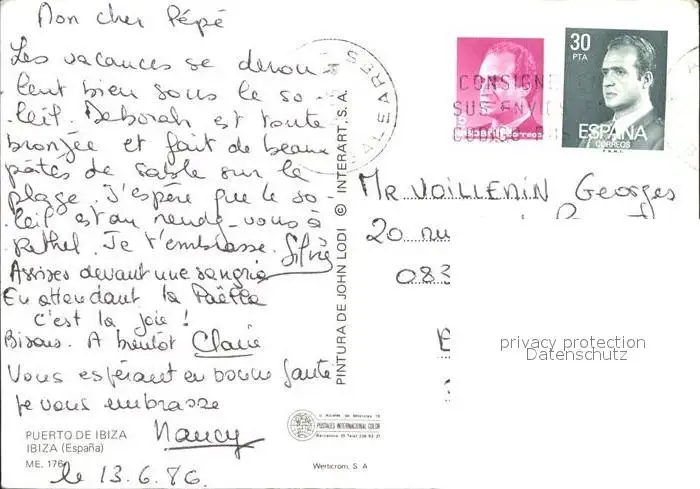 Mon cher Pépé
Les vacances se dérou
lent bien sous le so-
leil. Deborah est toute
bronzée et fait de beaux
pâtés de sable sur la
plage. J'espère que le so-
leil est au rendez-vous à
Rethel. Je t'embrasse. Silvie
Assises devant une sangria
En attendant la Paëlla
c'est la joie !
Bisous. A bientôt Claire
Vous espérant en bonne santé
je vous embrasse
Nancy
le 13.6.86
PUERTO DE IBIZA
IBIZA (España)
ME. 176
PINTURA DE JOHN LODI © INTERART, S.A.
POSTALES INTERNACIONAL COLOR
Werticrom, S. A
BALEARES
CONSIGNE EN
SUS ENVIOS
ESPAÑA CORREOS
30
PTA
ESPAÑA
CORREOS
Mr VOILLEMIN Georges
20 ru
083
privacy protection
Datenschutz